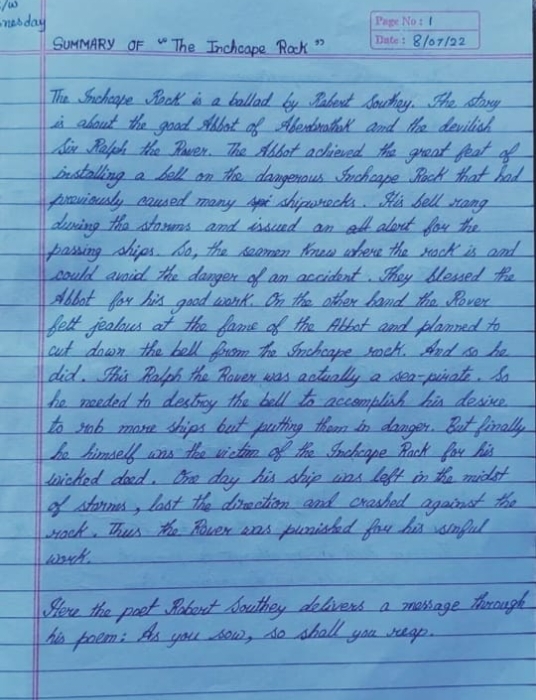 /w
nesday
Page No : 1
Date : 8/07/22
SUMMARY OF "The Inchcape Rock"
The Inchcape Rock is a ballad by Robert Southey. The story
is about the good Abbot of Aberbrothok and the devilish
Sir Ralph the Rover. The Abbot achieved the great feat of
installing a bell on the dangerous Inchcape Rock that had
previously caused many shipwrecks. His bell rang
during the storms and issued an alert for the
passing ships. So, the seamen knew where the rock is and
could avoid the danger of an accident. They blessed the
Abbot for his good work. On the other hand the Rover
felt jealous at the fame of the Abbot and planned to
cut down the bell from the Inchcape rock. And so he
did. This Ralph the Rover was actually a sea-pirate. So
he needed to destroy the bell to accomplish his desire
to rob more ships but putting them in danger. But finally
he himself was the victim of the Inchcape Rock for his
wicked deed. One day his ship was left in the midst
of storms, lost the direction and crashed against the
rock. Thus the Rover was punished for his sinful
work.
Here the poet Robert Southey delivers a message through
his poem: As you sow, so shall you reap.